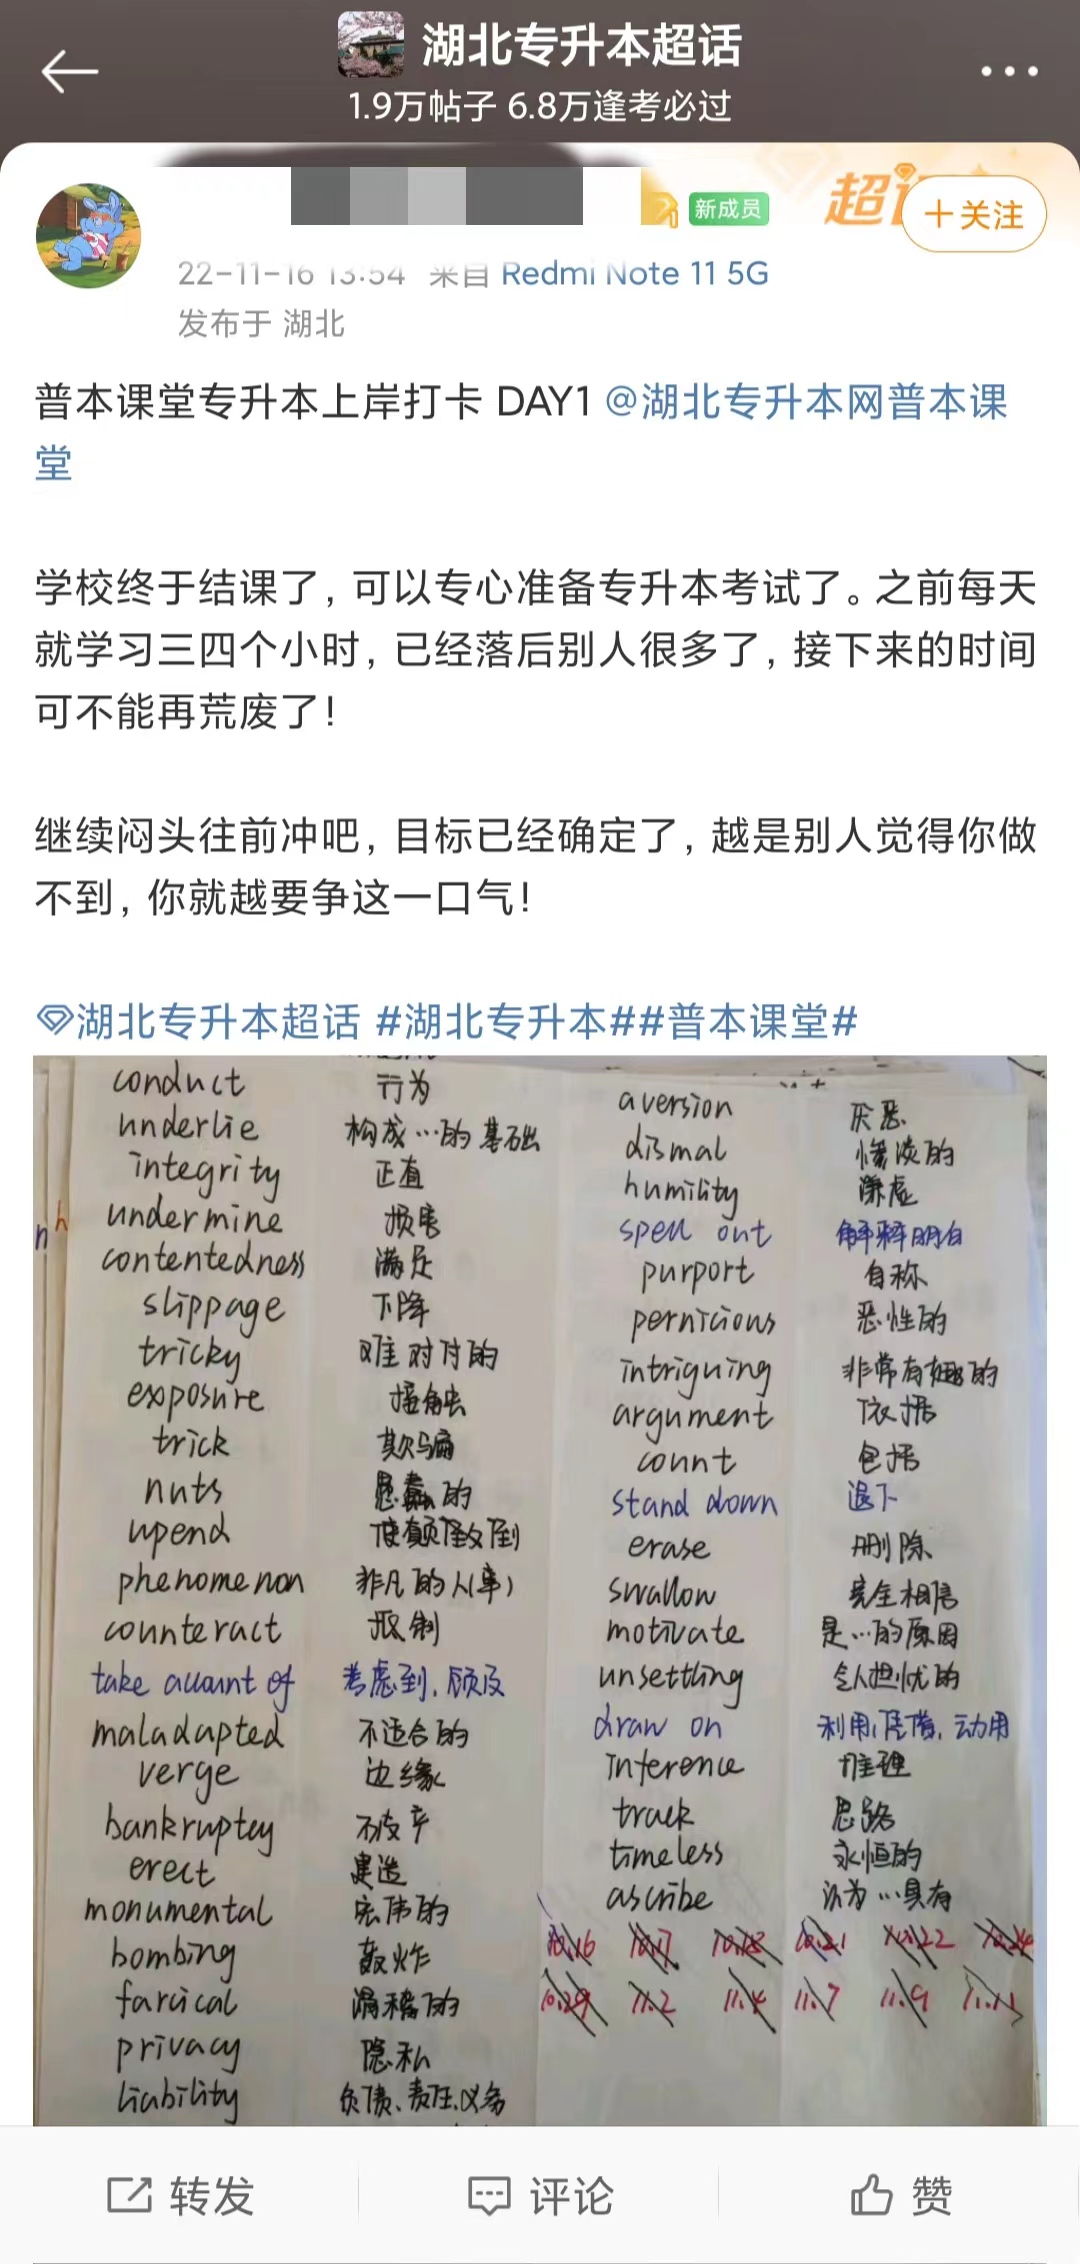 湖北专升本超话
1.9万帖子 6.8万逢考必过
新成员
超
+关注
22-11-16 13:54 来自 Redmi Note 11 5G
发布于 湖北
普本课堂专升本上岸打卡 DAY1 @湖北专升本网普本课
堂
学校终于结课了，可以专心准备专升本考试了。之前每天
就学习三四个小时，已经落后别人很多了，接下来的时间
可不能再荒废了！
继续闷头往前冲吧，目标已经确定了，越是别人觉得你做
不到，你就越要争这一口气！
湖北专升本超话 #湖北专升本##普本课堂#
conduct 行为
underlie 构成…的基础
integrity 正直
undermine 损害
contentedness 满足
slippage 下降
tricky 难对付的
exposure 接触
trick 欺骗
nuts 愚蠢的
upend 使颠倒
phenomenon 非凡的人(事)
counteract 抵制
take account of 考虑到,顾及
maladapted 不适合的
verge 边缘
bankruptcy 破产
erect 建造
monumental 宏伟的
bombing 轰炸
farcical 滑稽的
privacy 隐私
liability 负债、责任、义务
aversion 厌恶
dismal 惨淡的
humility 谦虚
spell out 解释明白
purport 自称
pernicious 恶性的
intriguing 非常有趣的
argument 依据
count 包括
stand down 退下
erase 删除
swallow 完全相信
motivate 是…的原因
unsettling 令人担忧的
draw on 利用,凭借,动用
inference 推理
track 思路
timeless 永恒的
ascribe 认为…具有
10.16 10.17 10.18 10.21 10.22 10.24
10.29 11.2 11.4 11.7 11.9 11.11
转发
评论
赞